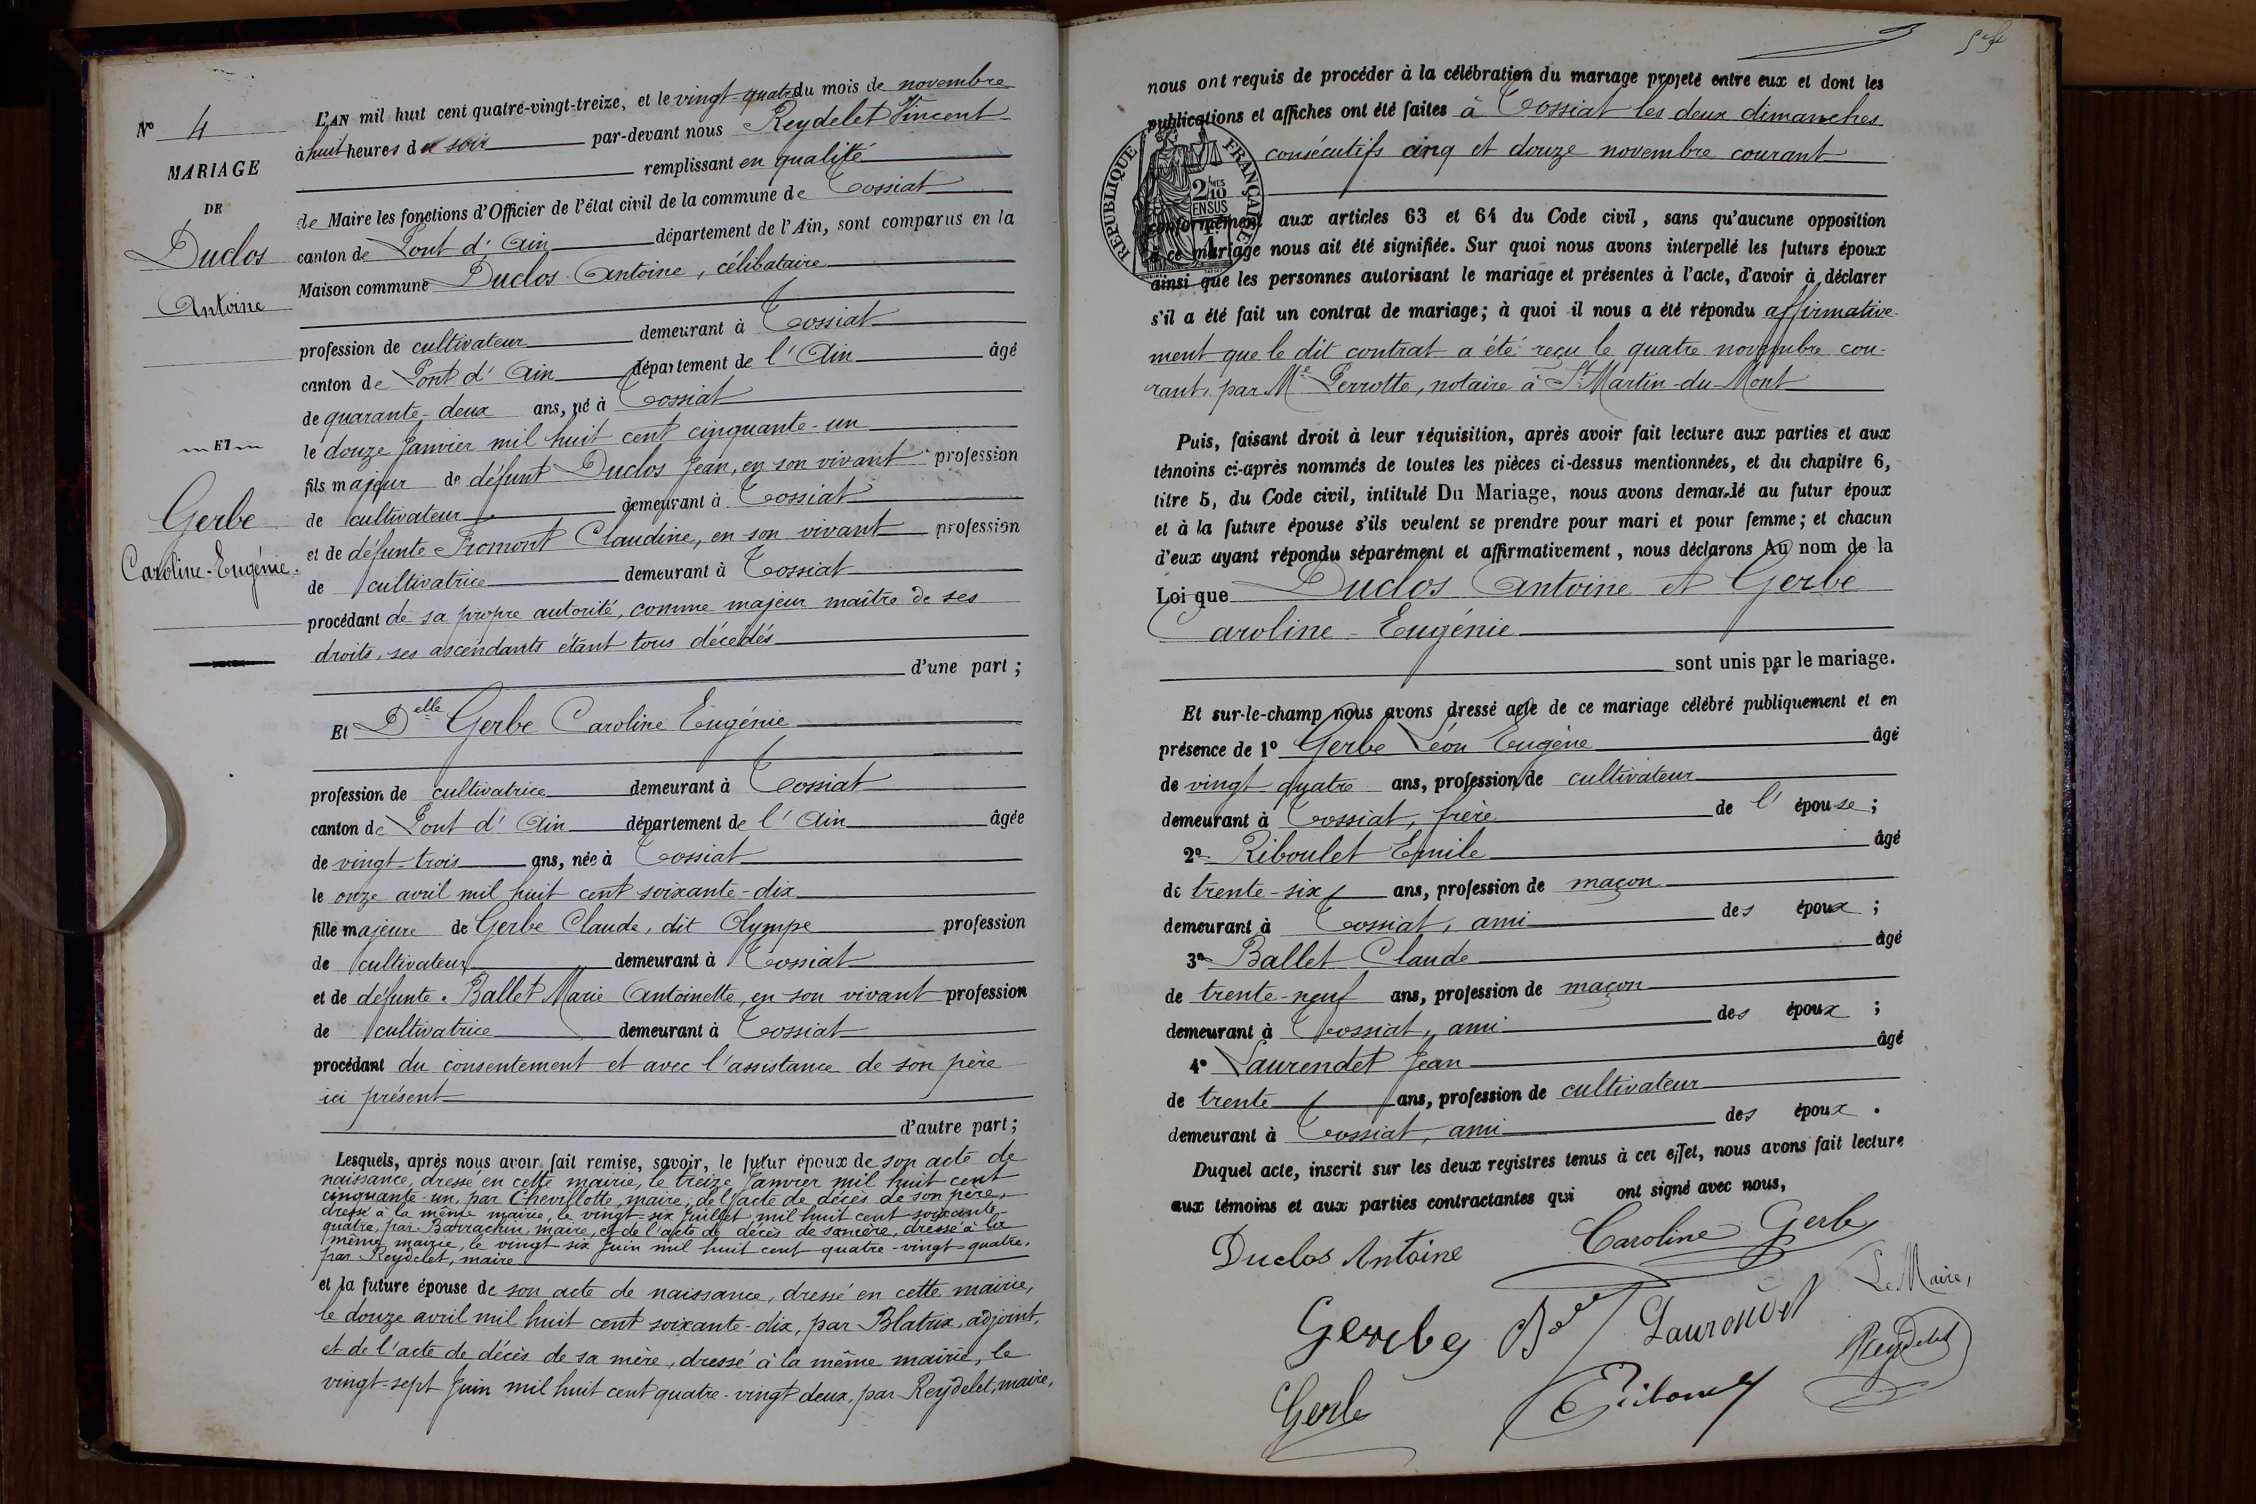 N° 4
MARIAGE
DE
Duclos
Antoine
ET
Gerbe
Caroline-Eugénie.
L'AN mil huit cent quatre-vingt-treize, et le vingt-quatre du mois de novembre
à huit heures du soir par-devant nous Reydelet Vincent
remplissant en qualité
de Maire les fonctions d'Officier de l'état civil de la commune de Tossiat
canton de Pont d'Ain département de l'Ain, sont comparus en la
Maison commune Duclos Antoine, célibataire
profession de cultivateur demeurant à Tossiat
canton de Pont d'Ain département de l'Ain âgé
de quarante-deux ans, né à Tossiat
le douze Janvier mil huit cent cinquante-un
fils majeur de défunt Duclos Jean, en son vivant profession
de cultivateur demeurant à Tossiat
et de défunte Fromont Claudine, en son vivant profession
de cultivatrice demeurant à Tossiat
procédant de sa propre autorité, comme majeur maître de ses
droits, ses ascendants étant tous décédés
d'une part ;
Et Delle Gerbe Caroline Eugénie
profession de cultivatrice demeurant à Tossiat
canton de Pont d'Ain département de l'Ain âgée
de vingt-trois ans, née à Tossiat
le onze avril mil huit cent soixante-dix
fille majeure de Gerbe Claude, dit Olympe profession
de cultivateur demeurant à Tossiat
et de défunte Ballet Marie Antoinette, en son vivant profession
de cultivatrice demeurant à Tossiat
procédant du consentement et avec l'assistance de son père
ici présent
d'autre part ;
Lesquels, après nous avoir fait remise, savoir, le futur époux de son acte de
naissance, dressé en cette mairie, le treize Janvier mil huit cent
cinquante-un, par Chevillotte, maire ; de l'acte de décès de son père,
dressé à la même mairie, le vingt-six Juillet mil huit cent soixante-
quatre, par Barrachin, maire, et de l'acte de décès de sa mère, dressé à la
même mairie, le vingt six Juin mil huit cent quatre-vingt-quatre,
par Reydelet, maire
et la future épouse de son acte de naissance, dressé en cette mairie,
le douze avril mil huit cent soixante-dix, par Blatrix, adjoint,
et de l'acte de décès de sa mère, dressé à la même mairie, le
vingt-sept Juin mil huit cent quatre-vingt deux, par Reydelet, maire,
nous ont requis de procéder à la célébration du mariage projeté entre eux et dont les
publications et affiches ont été faites à Tossiat les deux dimanches
consécutifs cinq et douze novembre courant
RÉPUBLIQUE FRANÇAISE
2/10
EN SUS
conformément aux articles 63 et 64 du Code civil, sans qu'aucune opposition
à ce mariage nous ait été signifiée. Sur quoi nous avons interpellé les futurs époux
ainsi que les personnes autorisant le mariage et présentes à l'acte, d'avoir à déclarer
s'il a été fait un contrat de mariage; à quoi il nous a été répondu affirmative-
ment que le dit contrat a été reçu le quatre novembre cou-
rant, par Me Perrotte, notaire à St Martin-du-Mont
Puis, faisant droit à leur réquisition, après avoir fait lecture aux parties et aux
témoins ci-après nommés de toutes les pièces ci-dessus mentionnées, et du chapitre 6,
titre 5, du Code civil, intitulé Du Mariage, nous avons demandé au futur époux
et à la future épouse s'ils veulent se prendre pour mari et pour femme; et chacun
d'eux ayant répondu séparément et affirmativement, nous déclarons Au nom de la
Loi que Duclos Antoine et Gerbe
Caroline-Eugénie
sont unis par le mariage.
Et sur-le-champ nous avons dressé acte de ce mariage célébré publiquement et en
présence de 1° Gerbe Léon Eugène âgé
de vingt quatre ans, profession de cultivateur
demeurant à Tossiat, frère de l'épouse ;
2° Riboulet Emile âgé
de trente-six ans, profession de maçon
demeurant à Tossiat, ami des époux ;
3° Ballet Claude âgé
de trente-neuf ans, profession de maçon
demeurant à Tossiat, ami des époux ;
4° Laurendet Jean âgé
de trente ans, profession de cultivateur
demeurant à Tossiat, ami des époux .
Duquel acte, inscrit sur les deux registres tenus à cet effet, nous avons fait lecture
aux témoins et aux parties contractantes qui ont signé avec nous,
Duclos Antoine Caroline Gerbe
Le Maire,
Gerbe Laurendet
Reydelet
Gerbe